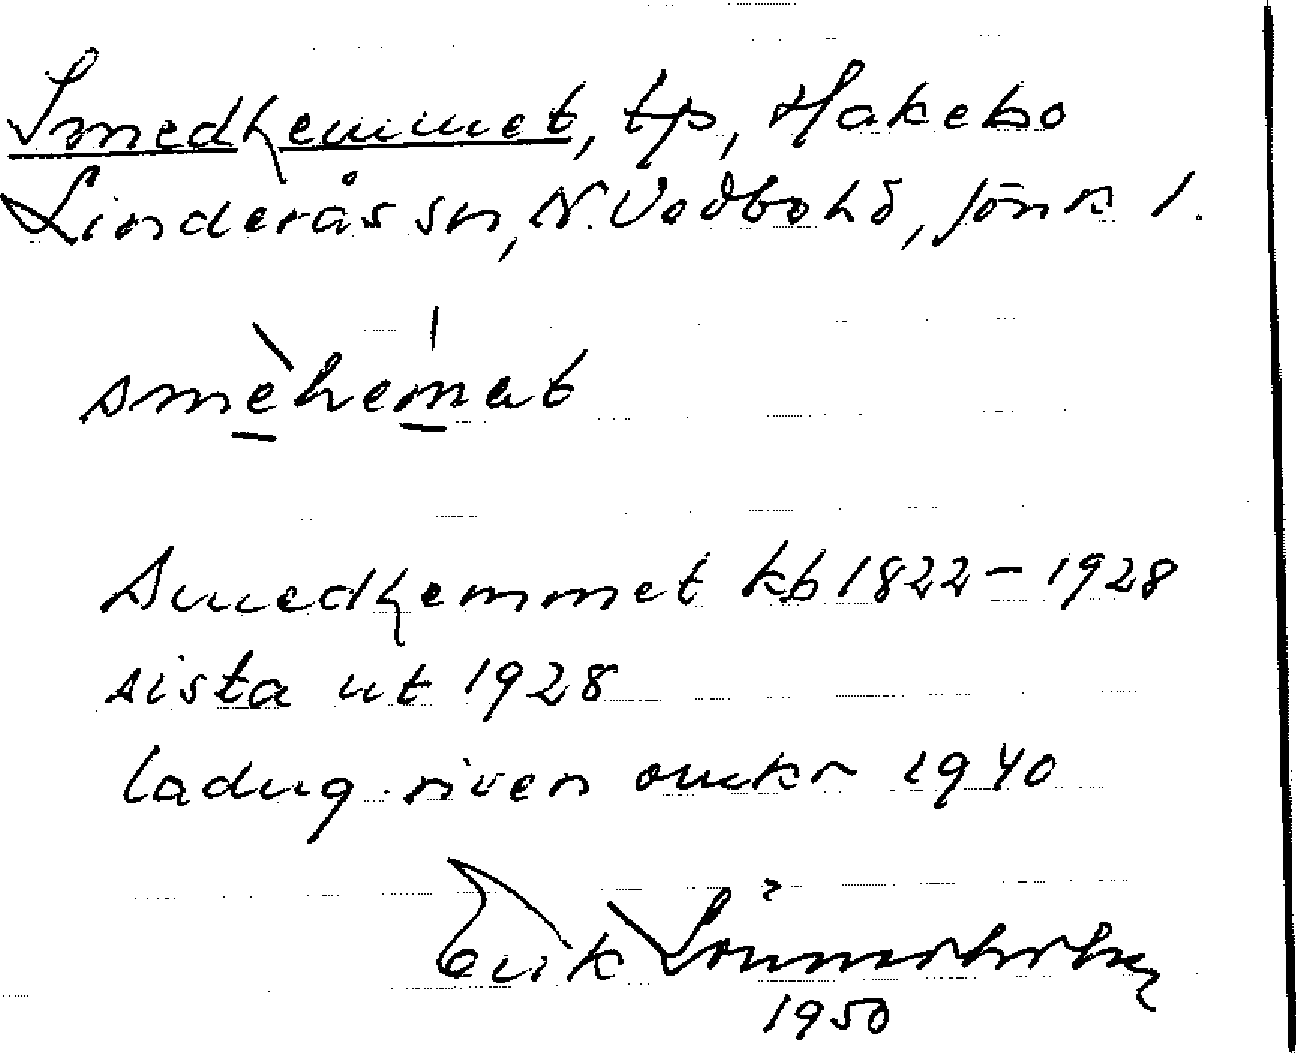 Smedhemmet, tp, Hakebo
Linderås sn, N. Vedbo hd, Jönk l.
smèhemat
Smedhemmet kb 1822–1928
sista ut 1928
ladug. riven omkr 1940
Erik
1950